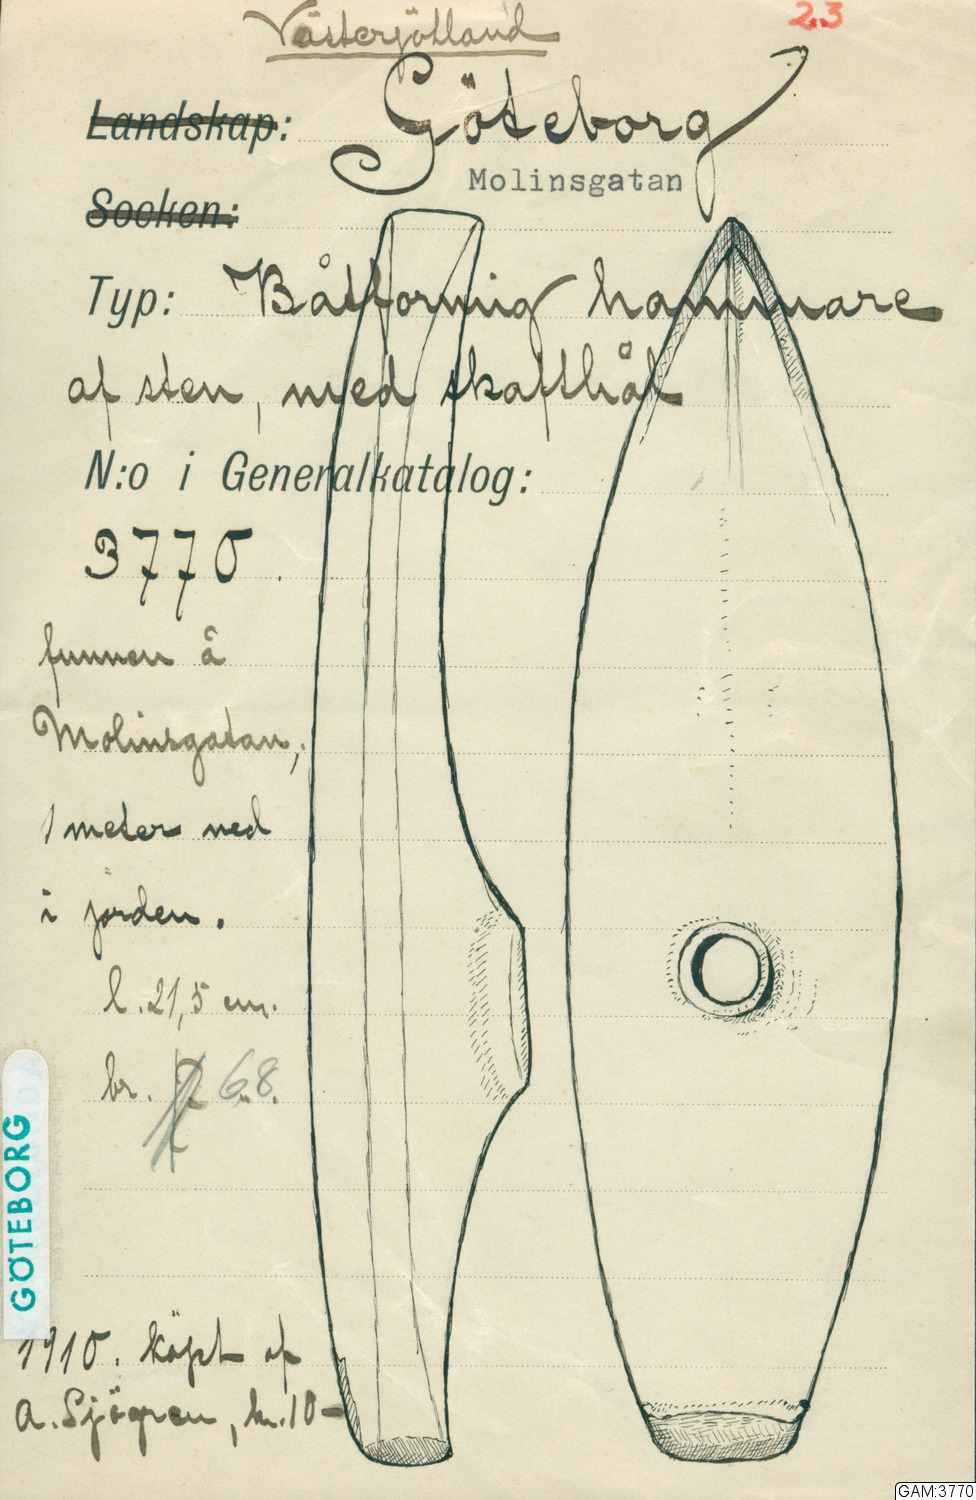 Västerjötland
23
Landskap: Göteborg
Molinsgatan
Socken:
Typ: Båtformig hammare
af sten, med skafthål
N:o i Generalkatalog:
3770.
funnen å
Molinsgatan,
1 meter ned
i jorden.
l. 21,5 cm.
br. 6.8.
GÖTEBORG
1910. köpt af
A. Sjögren, kr. 10-
GAM:3770